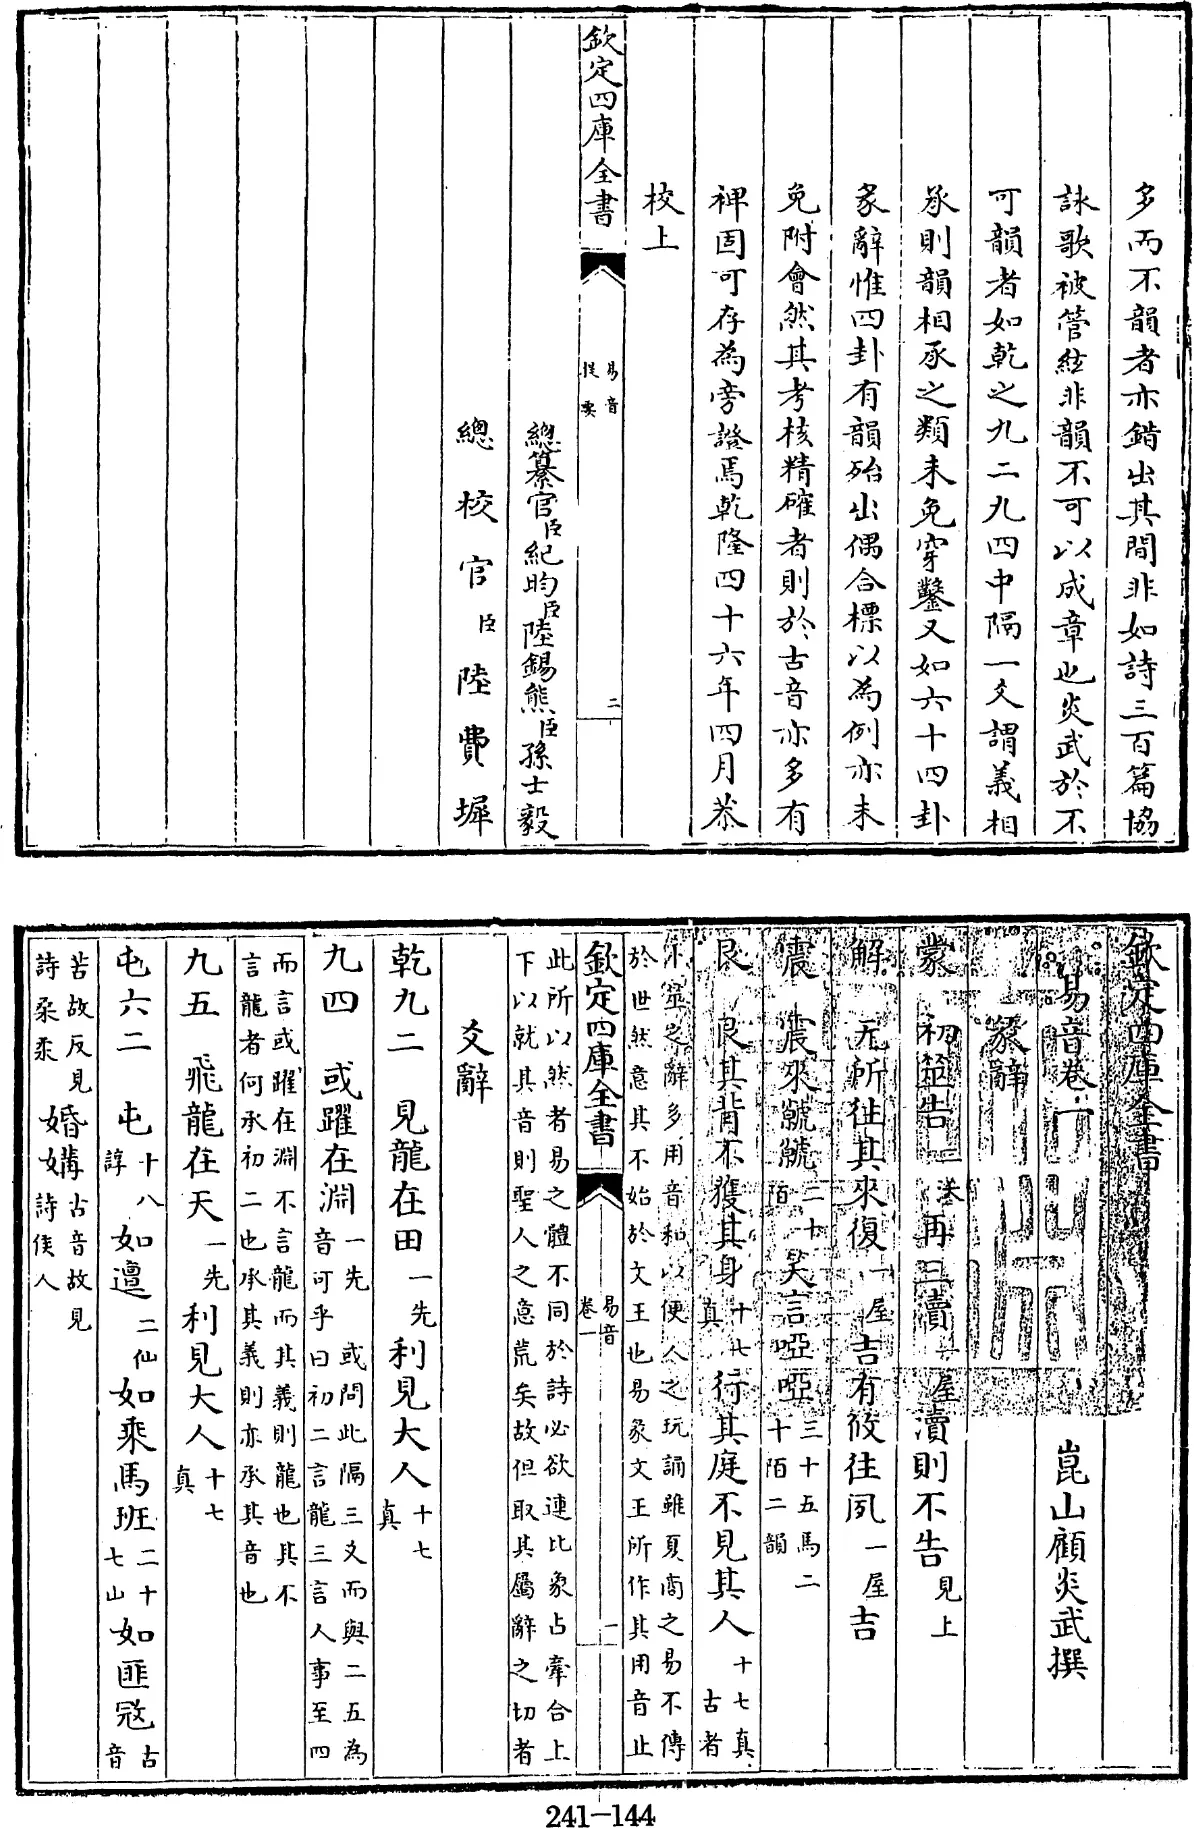 多而不韻者亦錯出其間非如詩三百篇協
詠歌被管絃非韻不可以成章也炎武於不
可韻者如乾之九二九四中隔一爻謂義相
承則韻相承之類未免穿鑿又如六十四卦
彖辭惟四卦有韻殆出偶合標以為例亦未
免附會然其考核精確者則於古音亦多有
裨固可存為旁證焉乾隆四十六年四月恭
校上
欽定四庫全書
易音
提要
二
總纂官臣紀昀臣陸錫熊臣孫士毅
總校官臣陸費墀
欽定四庫全書
易音卷一
崑山顧炎武撰
彖辭
蒙 初筮告二沃再三瀆一屋瀆則不告見上
解 无所往其來復一屋吉有攸往夙一屋吉
震 震來虩虩二十陌笑言啞啞三十五馬二十陌二韻
艮 艮其背不獲其身十七真行其庭不見其人十七真 古者
卜筮之辭多用音和以便人之玩誦雖夏商之易不傳
於世然意其不始於文王也易彖文王所作其用音止
欽定四庫全書
易音
卷一
一
此所以然者易之體不同於詩必欲連比象占牽合上
下以就其音則聖人之意荒矣故但取其屬辭之切者
爻辭
乾九二 見龍在田一先利見大人十七真
九四 或躍在淵一先 或問此隔三爻而與二五為音可乎曰初二言龍三言人事至四
而言或躍在淵不言龍而其義則龍也其不
言龍者何承初二也承其義則亦承其音也
九五 飛龍在天一先利見大人十七真
屯六二 屯十八諄如邅二仙如乘馬班二十七山如匪寇古音
苦故反見詩柔柔婚媾古音故見詩侯人
241-144